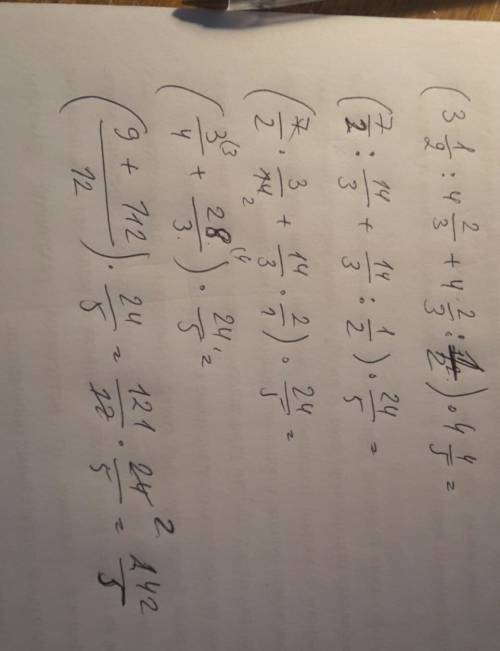 (3 1/2 : 4 2/3 + 4 2/3 : 1/2) · 4 4/5 =
(7/2 : 14/3 + 14/3 : 1/2) · 24/5 =
(7/2 · 3/14 2 + 14/3 · 2/1) · 24/5 =
(3/4 (3 + 28/3 (4) · 24/5 =
(9 + 112 / 12) · 24/5 = 121/12 · 24/5 2 = 242/5